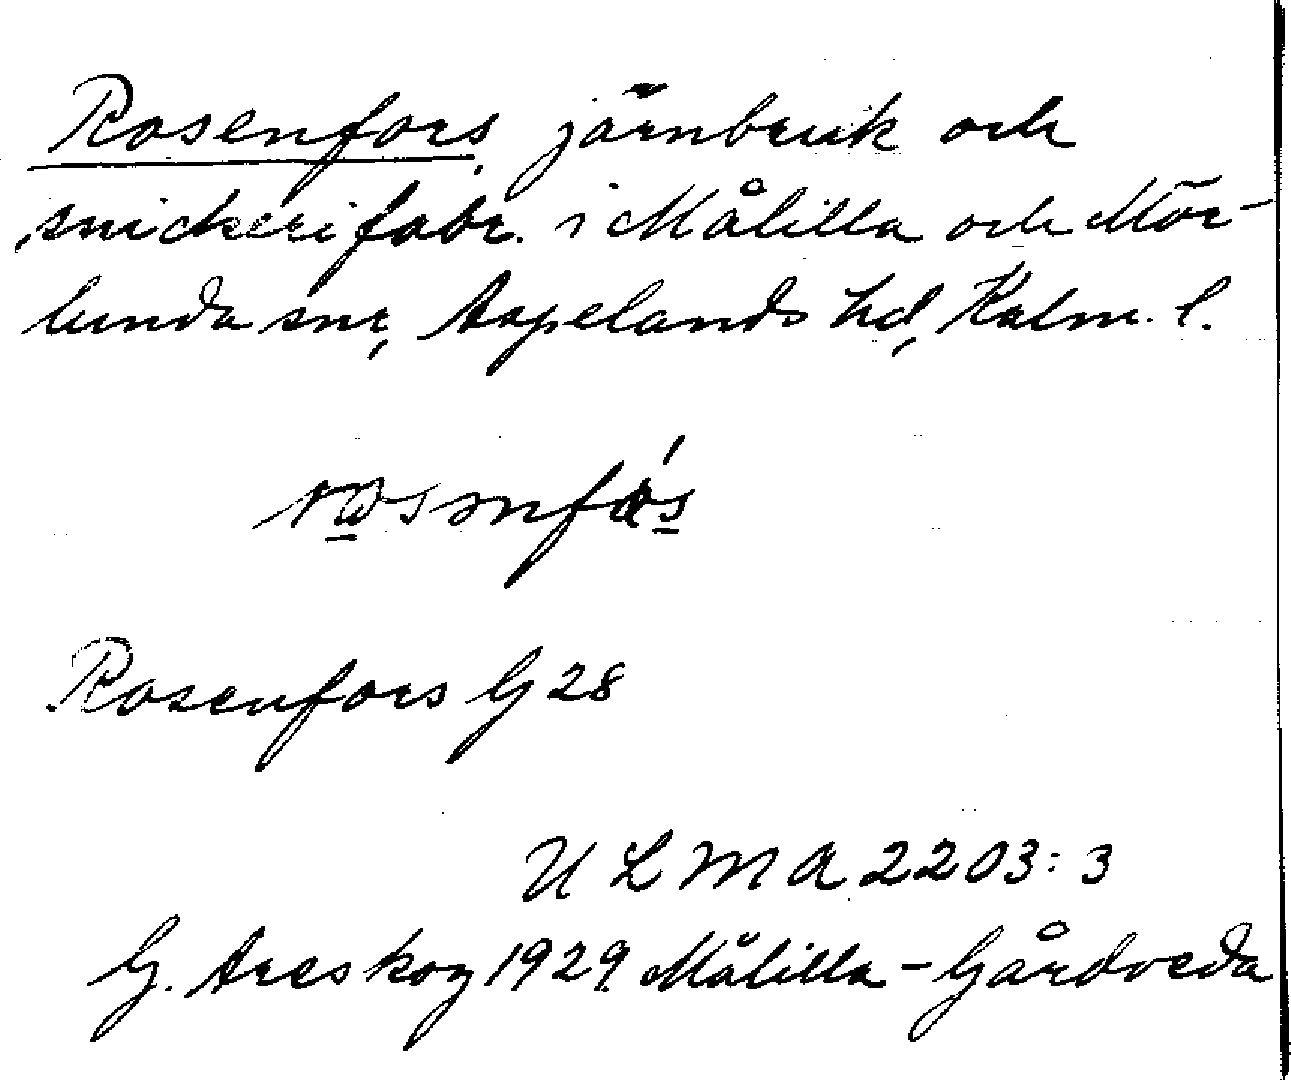 Rosenfors, järnbruk och
snickerifabr. i Målilla och Mör-
lunda snr, Aspelands hd, Kalm. l.
Rosenfors G 28
U L M A 2203:3
G. Areskog 1929 Målilla-Gårdveda